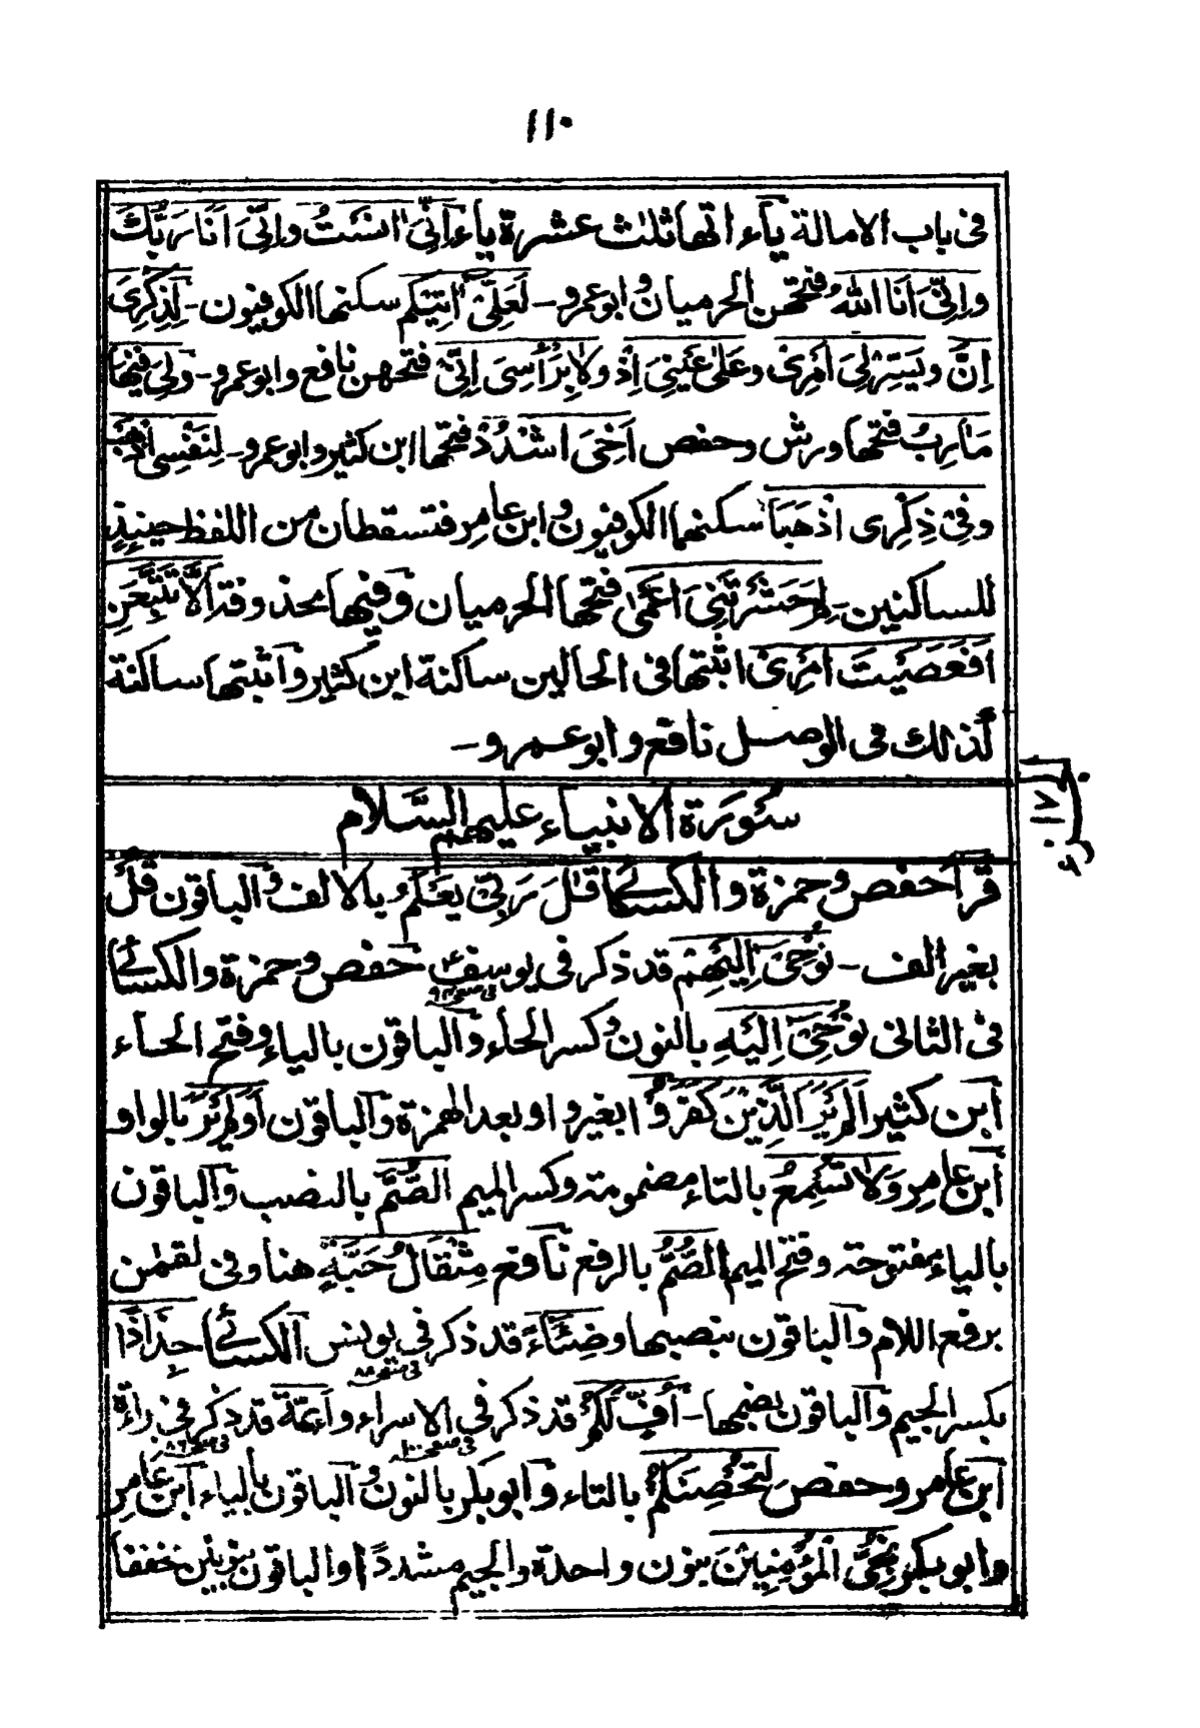 ١١٠
فى باب الامالة ياء اتها ثلث عشرة ياء اِنِّىَ اٰنَسْتُ واِنِّىَ اَنَا رَبُّكَ
واِنَّنِىَ اَنَا اللهُ فتحهن الحرميان وابوعمرو ـ لَعَلِّىَ اٰتِيْكم سكنها الكوفيون ـ لِذِكْرِىَ
اِنَّ و يَسِّرْلِىَ اَمْرِىْ و عَلٰى عَيْنِىَ اِذْ ولا بِرَأْسِىَ اِنِّىْ فتحهن نافع وابوعمرو ـ ولِىَ فِيْهَا
مَاٰرِبُ فتحها ورش وحفص اَخِىَ اشْدُدْ فتحها ابن كثير وابوعمرو ـ لِنَفْسِى اذْهَبْ
وفِىْ ذِكْرِى اذْهَبَا سكنهما الكوفيون وابن عامر فتسقطان من اللفظ حينئذٍ
للساكنين ـ لِمَ حَشَرْتَنِىَ اَعْمٰى فتحها الحرميان وفيها محذوفة اَلَّا تَتَّبِعَنِ
اَفَعَصَيْتَ اَمْرِىْ اثبتها فى الحالين ساكنة ابن كثير واثبتها ساكنة
كذلك فى الوصل نافع وابوعمرو ـ
سُوْرَة الانبياء عليهم السَّلام
قرأ حفص وحمزة والكسائى قٰلَ رَبِّىْ يَعْلَمُ بالالف والباقون قُلْ
بغير الف ـ نُوْحِىْ اِلَيْهِمْ قد ذكر فى يوسف حفص وحمزة والكسائى
فى الثانى نُوْحِىْ اِلَيْهِ بالنون وكسر الحاء والباقون بالياء وفتح الحاء
ابن كثير اَلَمْ يَرَ الَّذِيْنَ كَفَرُوْا بغير واو بعد الهمزة والباقون اَوَلَمْ يَرَ بالواو
ابن عامر وَلَا تُسْمِعُ بالتاء مضمومة وكسر الميم الصُّمَّ بالنصب والباقون
بالياء مفتوحة وفتح الميم الصُّمُّ بالرفع نافع مِثْقَالُ حَبَّةٍ هنا وفى لقمٰن
برفع اللام والباقون بنصبها وضِئَاءً قد ذكر فى يونس الكسائى جِذَاذًا
فى صفحه ٨٨
بكسر الجيم والباقون بضمها ـ اُفٍّ لَكُمْ قد ذكر فى الاسراء وأئمّة قد ذكر فى براءة
فى صفحه ١٠٠ فى صفحه ٨٦
ابن عامر وحفص لِتُحْصِنَكُمْ بالتاء وابوبكر بالنون والباقون بالياء ابن عامر
وابوبكر نُجِّى الْمُؤْمِنِيْنَ بنون واحدة والجيم مشددًا والباقون بنونين مخففا